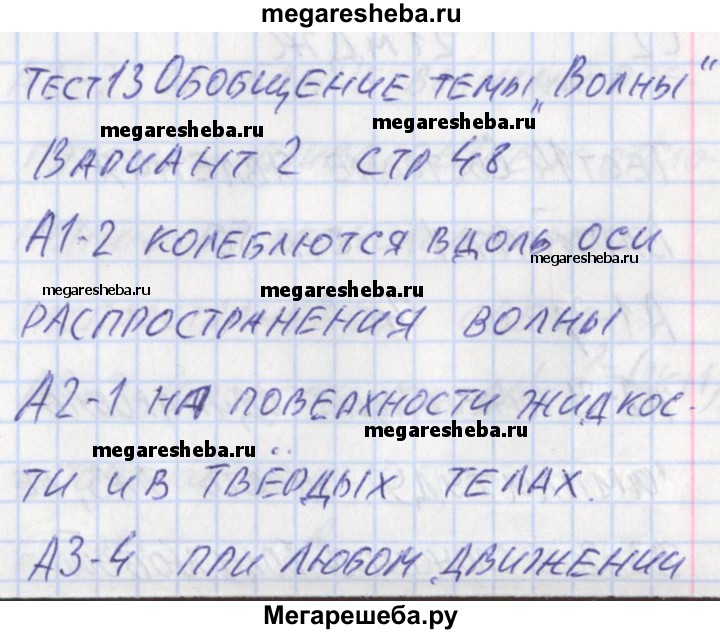 megaresheba.ru
Тест 13 Обобщение темы „Волны“
megaresheba.ru megaresheba.ru
Вариант 2 стр 48
А1-2 колеблются вдоль оси
megaresheba.ru
megaresheba.ru megaresheba.ru
распространения волны
А2-1 на поверхности жидкос-
megaresheba.ru megaresheba.ru
ти и в твёрдых телах.
А3-4 при любом движении
Мегарешеба.ру